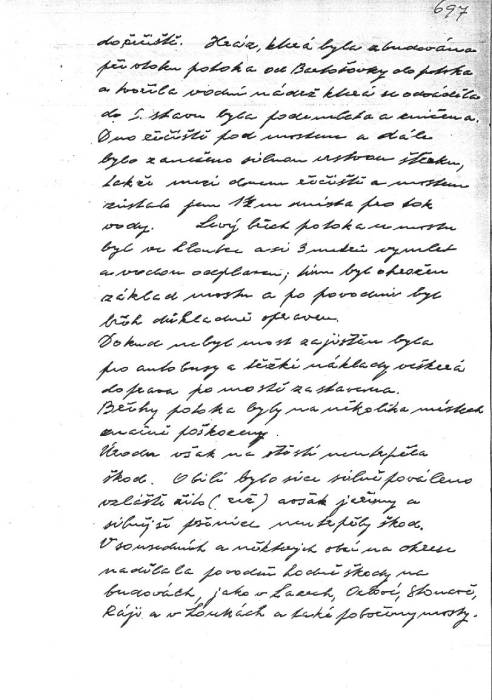 697
do řečiště. Hráz, která byla zbudována
při vtoku potoka od Bartošovky do potoka
a tvořila vodní nádrž která se odváděla
do I. stavu byla podemleta a zničena.
Dno řečiště pod mostem a dále
bylo zaneseno silnou vrstvou štěrku,
takže mezi dnem řečiště a mostem
zůstalo jen 1½ m místa pro tok
vody. Levý břeh potoka u mostu
byl ve hloubce asi 3 metrů vymlet
a vodou odplaven; tím byl ohrožen
základ mostu a po povodni byl
břeh důkladně opraven.
Dokud nebyl most zajištěn byla
pro autobusy a těžké náklady veškerá
doprava po mostě zastavena.
Břehy potoka byly na několika místech
značně poškozeny.
Úroda však na štěstí neutrpěla
škod. Obilí bylo sice silně pováleno
vzláště žito (rež) avšak ječmeny a
silnější pšenice neutrpěly škod.
V sousedních a některých obcí na okrese
nadělala povodeň hodně škody na
budovách, jako v Lazech, Orlové, Stonavě,
Ráji a v Loukách a také pobořeny mosty.